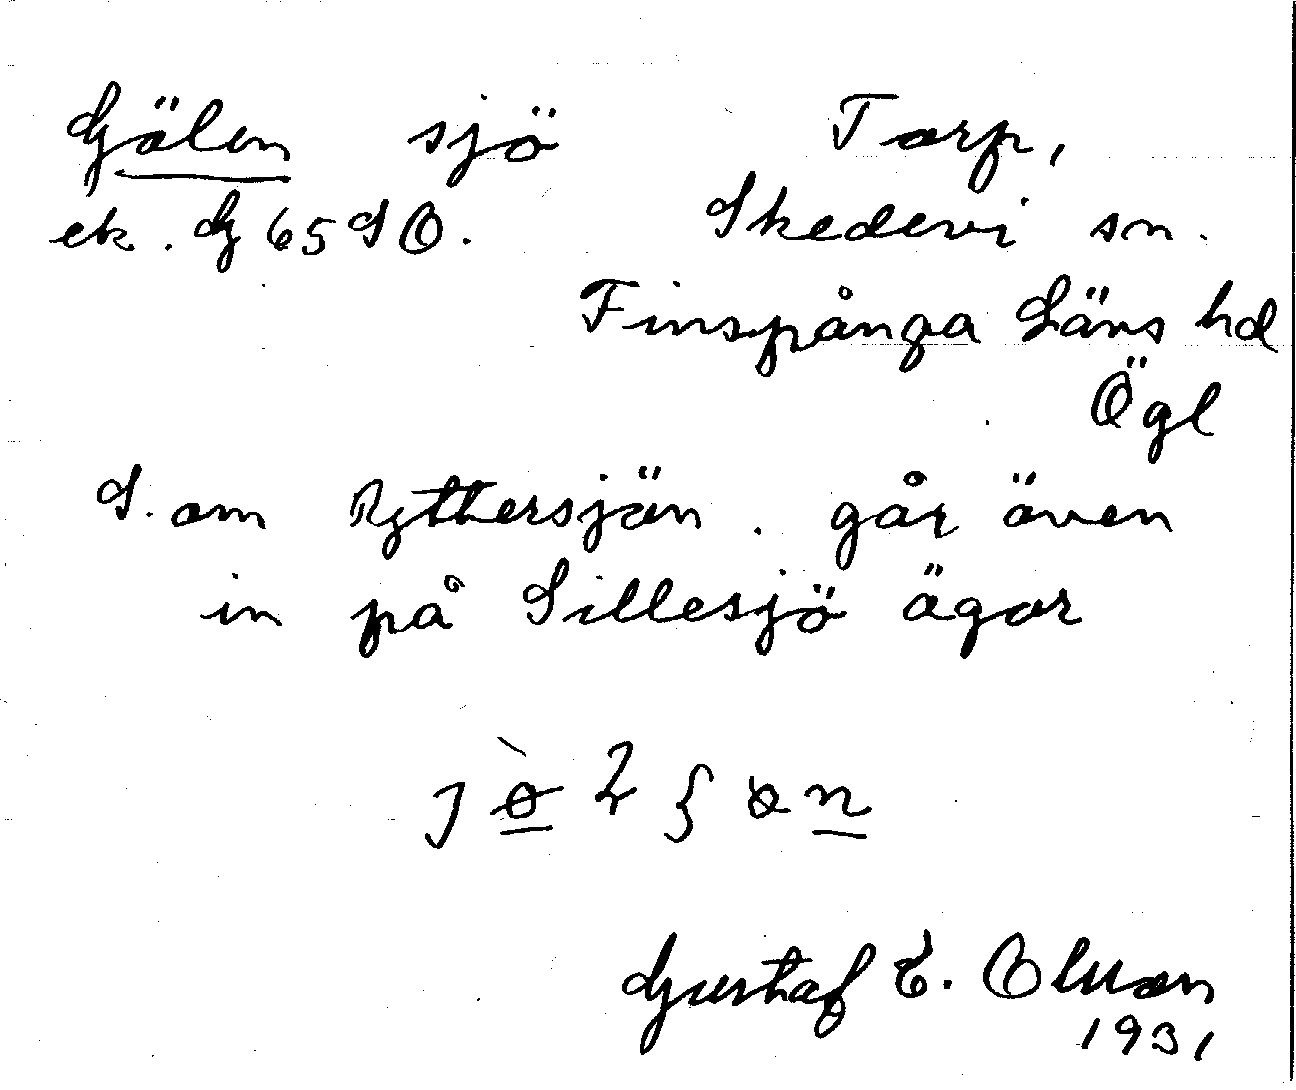 Gälen sjö Torp,
ek. G 65 SO. Skedevi sn.
Finspånga Läns hd
Ögl
S. om Ryttersjön. går även
in på Sillesjö ägor
Gustaf E. Olsson
1931